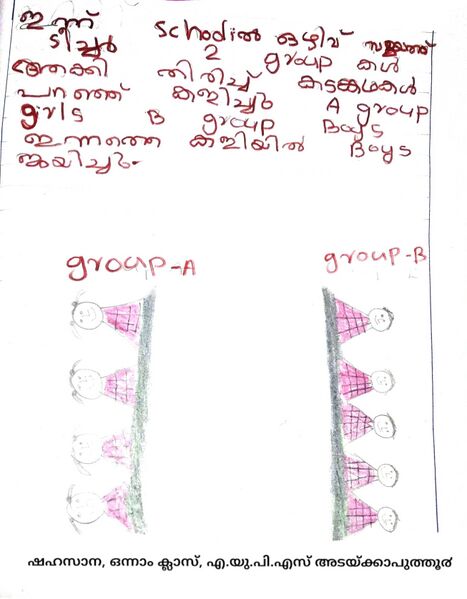 ഇന്ന് schoolിൽ ഒഴിവ് സമയത്ത്
ടീച്ചർ 2 group കൾ
ആക്കി തിരിച്ച് കടങ്കഥകൾ
പറഞ്ഞ് കളിച്ചു A group
girls B group Boys
ഇന്നത്തെ കളിയിൽ Boys
ജയിച്ചു.
group-A
group-B
ഷഹസാന, ഒന്നാം ക്ലാസ്, എ.യു.പി.എസ് അടയ്ക്കാപുത്തൂർ